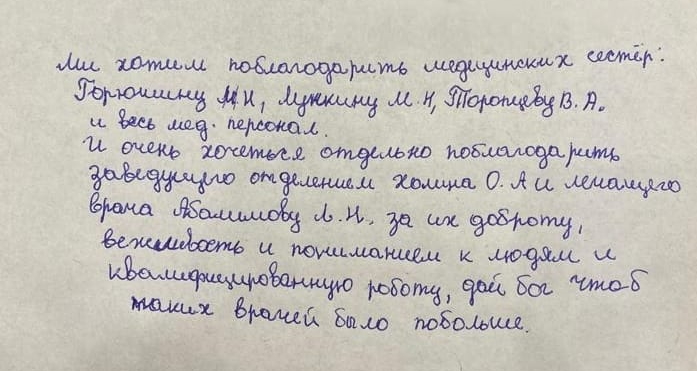 Ми хотим поблагодарить медицинских сестёр:
Горюшину М.Н, Лункину М.Н, Торопцеву В.А.
и весь мед. персонал.
И очень хочеться отдельно поблагодарить
заведующего отделением Холина О.А и лечащего
врача Абалимову Л.Н. за их доброту,
вежливость и пониманием к людям и
квалифицированную роботу, дай бог чтоб
таких врачей было побольше.